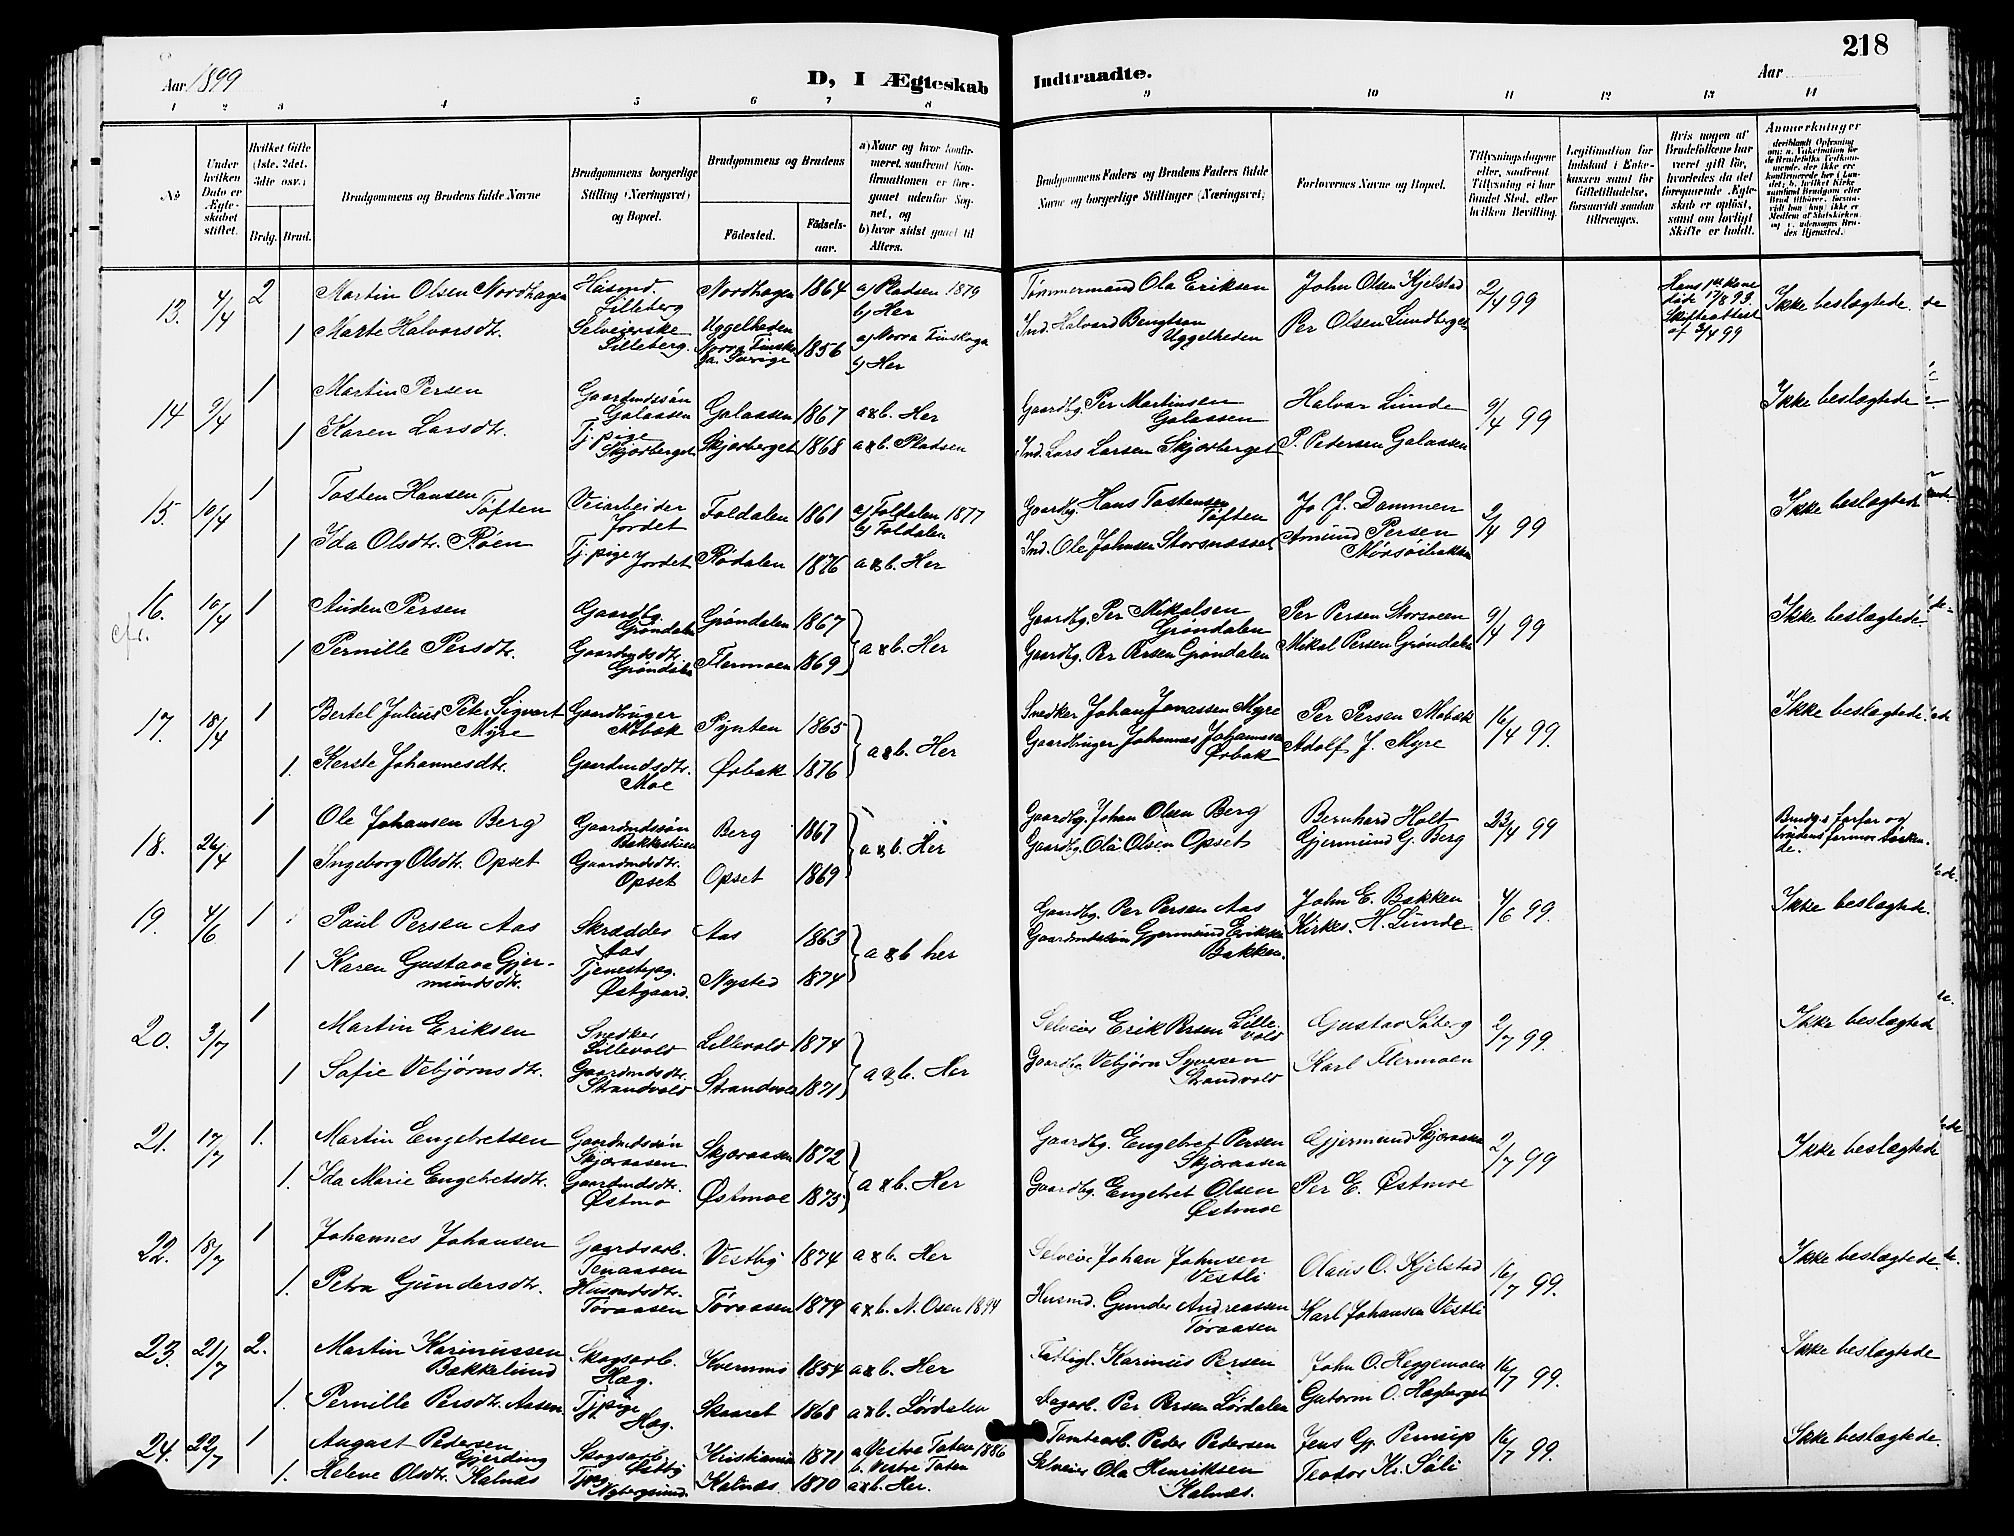 218
Aar 1899
D, I Ægteskab
Indtraadte.
Aar
1 2 3 4 5 6 7 8 9 10 11 12 13 14
No
Under hvilken Dato er Ægteskabet stiftet.
Hvilket Gifte (1ste, 2det, 3die osv.)
Brdg. Brud.
Brudgommens og Brudens fulde Navne
Brudgommens borgerlige Stilling (Næringsvei) og Bopæl.
Brudgommens og Brudens
Fødested.
Fødselsaar.
a) Naar og hvor konfirmeret, saafremt Konfirmationen er foregaaet udenfor Sognet, og
b) hvor sidst gaaet til Alters.
Brudgommens Faders og Brudens Faders fulde Navne og borgerlige Stillinger (Næringsvei)
Forlovernes Navne og Bopæl.
Tillysningsdagene eller, saafremt Tillysning ei har fundet Sted, efter hvilken Bevilling.
Legitimation for Indskud i Enkekassen samt for Giftetilladelse, forsaavidt saadan tiltrænges.
Hvis nogen af Brudefolkene har været gift før, hvorledes da det foregaaende Ægteskab er opløst, samt om lovligt Skifte er holdt.
Anmerkninger
13. 4/4 2 Martin Olsen Nordhagen Husmd. Lilleberg Nordhagen 1864 a) Pladsen 1879 b) Her Tømmermand Ola Eriksen John Olsen Kjelstad 2/4 99 Hans 1ste kone døde 17/8 93. Skifteattest af 3/4 99 Ikke beslægtede
1 Marte Halvorsdtr. Selveierske Lilleberg. Uggelheden Norra Finskoga Sverige 1856 a) Norra Finskoga b) Her Ind. Halvard Bengtson Uggelheden Per Olsen Lundberget
14 9/4 1 Martin Persen Gaardmdssøn Galaasen Galaasen 1867 a & b. Her Gaardbg. Per Martinsen Galaasen Halvar Lunde 9/4 99 Ikke beslægtede
1 Karen Larsdtr. Tj.pige Skjærberget Skjærberget 1868 a & b. Pladsen Ind. Lars Larsen Skjærberget P. Pedersen Galaasen
15. 10/4 1 Tosten Hansen Tøften Veiarbeider Jordet Foldalen 1861 a) Foldalen 1877 b) Foldalen Gaardbg. Hans Tostensen Tøften Jo J. Dammen 2/4 99 Ikke beslægtede
1 Ida Olsdtr. Røen Tj.pige Jordet Rødalen 1876 a & b. Her Ind. Ole Johnsen Storsnæsset Amund Persen Mørsøibakken
16. 10/4 1 Auden Persen Gaardbg. Grøndalen Grøndalen 1867 a & b. Her Gaardbg. Per Mikalsen Grøndalen Per Persen Storsveen 9/4 99 Ikke beslægtede.
1 Pernille Persdtr. Gaardmdsdtr. Grøndalen Flermoen 1869 Gaardbg. Per Persen Grøndalen Mikal Persen Grøndalen
17. 18/4 1 Bertel Julius Peter Sigvart Myre Gaardbruger Mobæk Pynten 1865 a & b. Her Snedker Johan Jonassen Myre Per Persen Mobæk 16/4 99. Ikke beslægtede.
1. Kerste Johannesdtr. Gaardmdsdtr. Moe Ørbæk 1876 Gaardbruger Johannes Johannessen Ørbæk Adolf J. Myre
18. 26/4 1 Ole Johansen Berg Gaardmdssøn Bakkestuen Berg 1867 a & b. Her Gaardbg. Johan Olsen Berg Bernhard Holt 23/4 99 Brudg.s farfar og brudens farmor søsken
1 Ingeborg Olsdtr. Opset Gaardmdsdtr. Opset Opset 1869 Gaardbg. Ola Olsen Opset Gjermund G. Berg
19. 4/6 1 Paul Persen Aas Skrædder Aas Aas 1863 a & b her Gaardbg. Per Persen Aas John E. Bakken 4/6 99. Ikke beslægtede.
1 Karen Gustava Gjermundsdtr. Tjenestepg. Østgaard. Nysted 1874 Gaardmdssøn Gjermund Eriksen Bakken. Kirkes. H. Lunde
20. 3/7 1 Martin Eriksen Snedker Lillevold Lillevold 1874 a & b. Her Selveier Erik Persen Lillevold Gustav Søberg 2/7 99. Ikke beslægtede
1 Sofie Vebjørnsdtr. Gaardmdsdtr. Strandvold Strandvold 1871 Gaardbg. Vebjørn Syversen Strandvold Karl Flermoen
21. 17/7 1. Martin Engebretsen Gaardmdssøn Skjæraasen Skjæraasen 1872 a & b. Her Gaardbg. Engebret Persen Skjæraasen Gjermund Skjæraasen 2/7 99 Ikke beslægtede
1. Ida Marie Engebretsdtr. Gaardmdsdtr. Østmo Østmoe 1875 Gaardbg. Engebret Olsen Østmoe Per E. Østmoe
22. 18/7 1 Johannes Johansen Gaardsarb. Tenaasen Vestby 1874 a & b. Her Selveier Johan Johnsen Vestli Olaus O. Kjelstad 16/7 99. Ikke beslægtede.
1. Petra Gundersdtr. Husmdsdtr. Tøraasen Tøraasen 1879 a & b. N. Osen 1894 Husmd. Gunder Andreassen Tøraasen Karl Johansen Vestli
23. 21/7 2. Martin Karinussen Bakkelund Skogsarb. Hag. Kvernmo 1854 a & b. Her Fattigl. Karinus Persen John O. Heggemoen 16/7 99. Ikke beslægtede
1. Pernille Persdtr. Aasen Tj.pige Hag. Skaaret 1868 a & b. Lørdalen Dagarb. Per Persen Lørdalen Gutorm O. Hagberget
24. 22/7 1 August Pedersen Gjerding Skogsarb. Kristiania 1871 a. Vestre Toten 1886 b. Vestre Toten Tomtearb. Peder Pedersen Jens Gj. Perrup 16/7 99. Ikke beslægtede.
1. Helene Olsdtr. Kalnæs Tjpg. Nybergsund. Kalnæs 1870 a & b. Her. Selveier Ola Henriksen Kalnæs. Teodor Kr. Søli